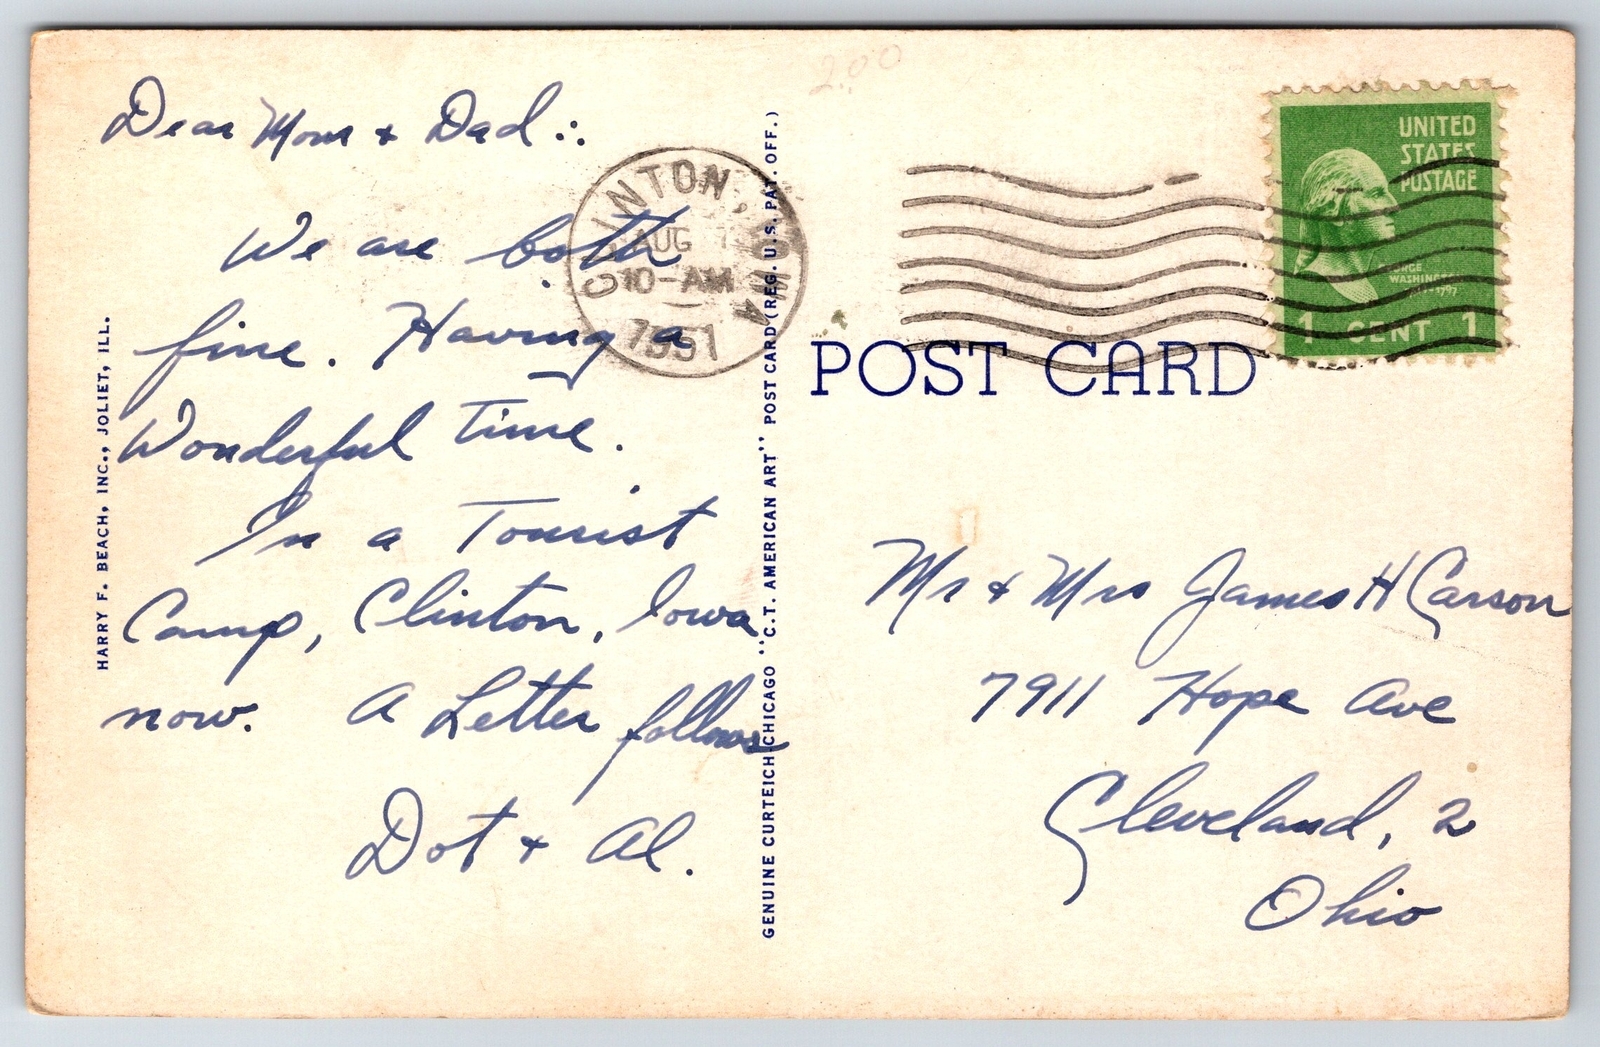 2.00
Dear Mom & Dad :.
We are both
fine. Having a
Wonderful Time.
In a Tourist
Camp, Clinton, Iowa
now. A Letter follows
Dot & Al.
HARRY F. BEACH, INC., JOLIET, ILL.
CLINTON, IOWA
AUG
10-AM
1951
GENUINE CURTEICH-CHICAGO "C.T. AMERICAN ART" POST CARD (REG. U.S. PAT. OFF.)
UNITED
STATES
POSTAGE
GEORGE
WASHINGTON
1 CENT 1
POST CARD
Mr & Mrs James H Carson
7911 Hope Ave
Cleveland, 2
Ohio